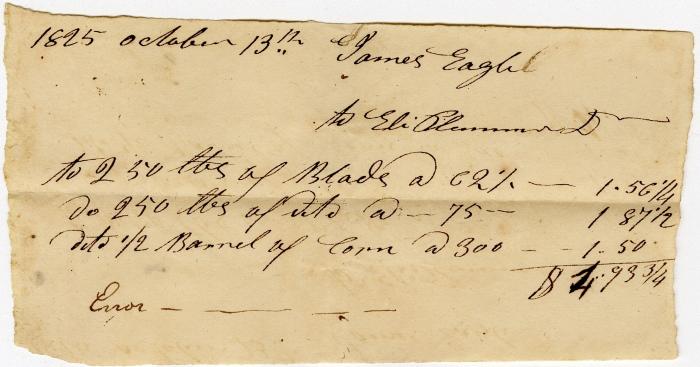 1825 october 13th James Eagle
to Eli Plummer Dr
to 250 lbs of Blads a 62½ — 1.56¼
do 250 lbs of dito a — 75 — 1 87½
dito ½ Barrel of Corn a 300 — 1.50
$ 4.93¾
Error — — — —